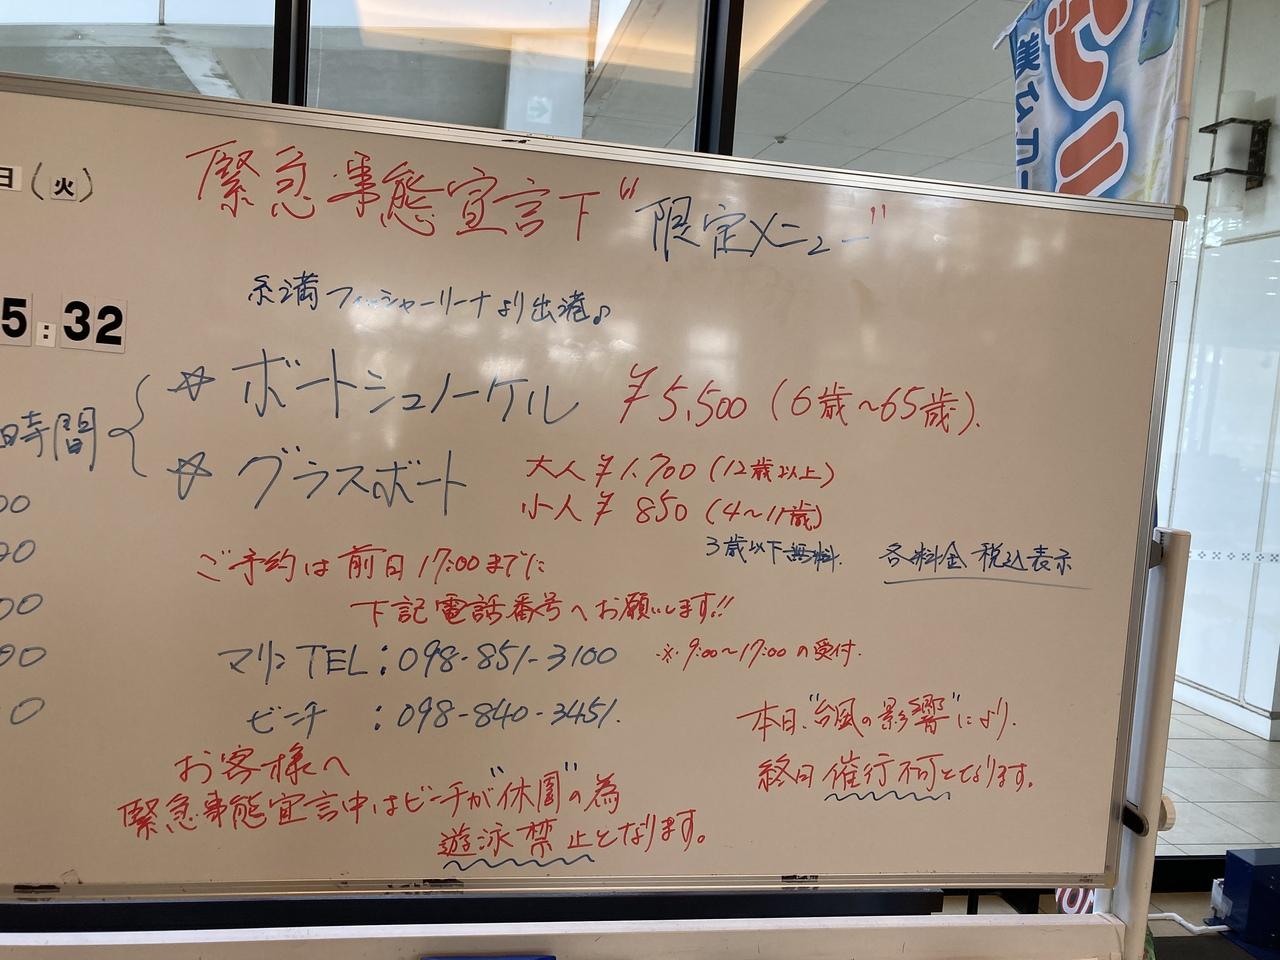 日(火)
緊急事態宣言下“限定メニュー”
糸満フィッシャーリーナより出港♪
5:32
時間
☆ ボートシュノーケル ¥5,500 (6歳~65歳).
☆ グラスボート 大人 ¥1.700 (12歳以上)
小人 ¥ 850 (4~11歳)
3歳以下無料. 各料金 税込表示
00
00
00
0
ご予約は前日17:00までに
下記電話番号へお願いします!!
マリン TEL:098-851-3100 ※9:00~17:00の受付.
ビーチ :098-840-3451.
本日“台風の影響”により.
終日催行不可となります。
お客様へ
緊急事態宣言中はビーチが“休園”の為
遊泳禁止となります。
美